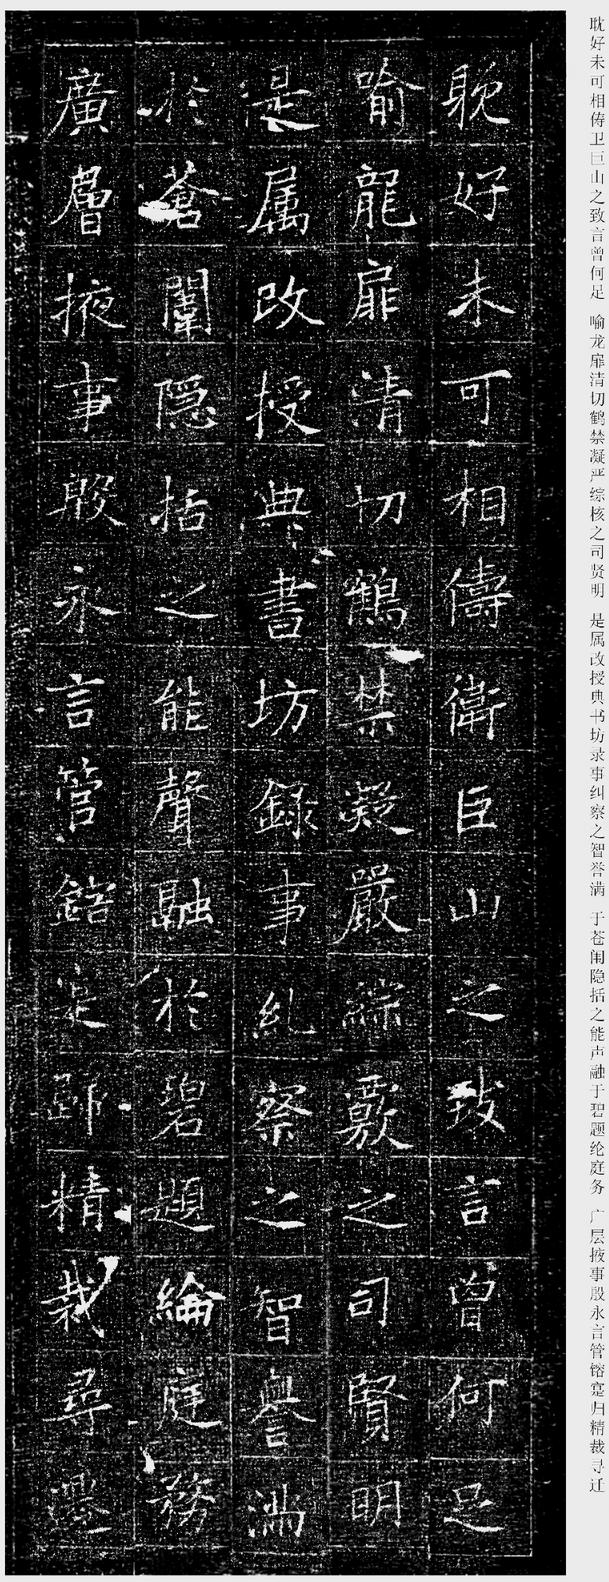 耽好未可相俦卫巨山之致言曾何足 喻龙扉清切鹤禁凝严综核之司贤明 是属改授典书坊录事纠察之智誉满 于苍闱隐括之能声融于碧题纶庭务 广层掖事殷永言管镕寔归精裁寻迁
耽好未可相儔衛巨山之致言曾何足
喻龍扉清切鶴禁凝嚴綜覈之司賢明
是属改授典書坊録事糺察之智譽滿
於蒼闈隱括之能聲融於碧題綸庭務
廣層掖事殷永言管鎋寔歸精裁尋遷